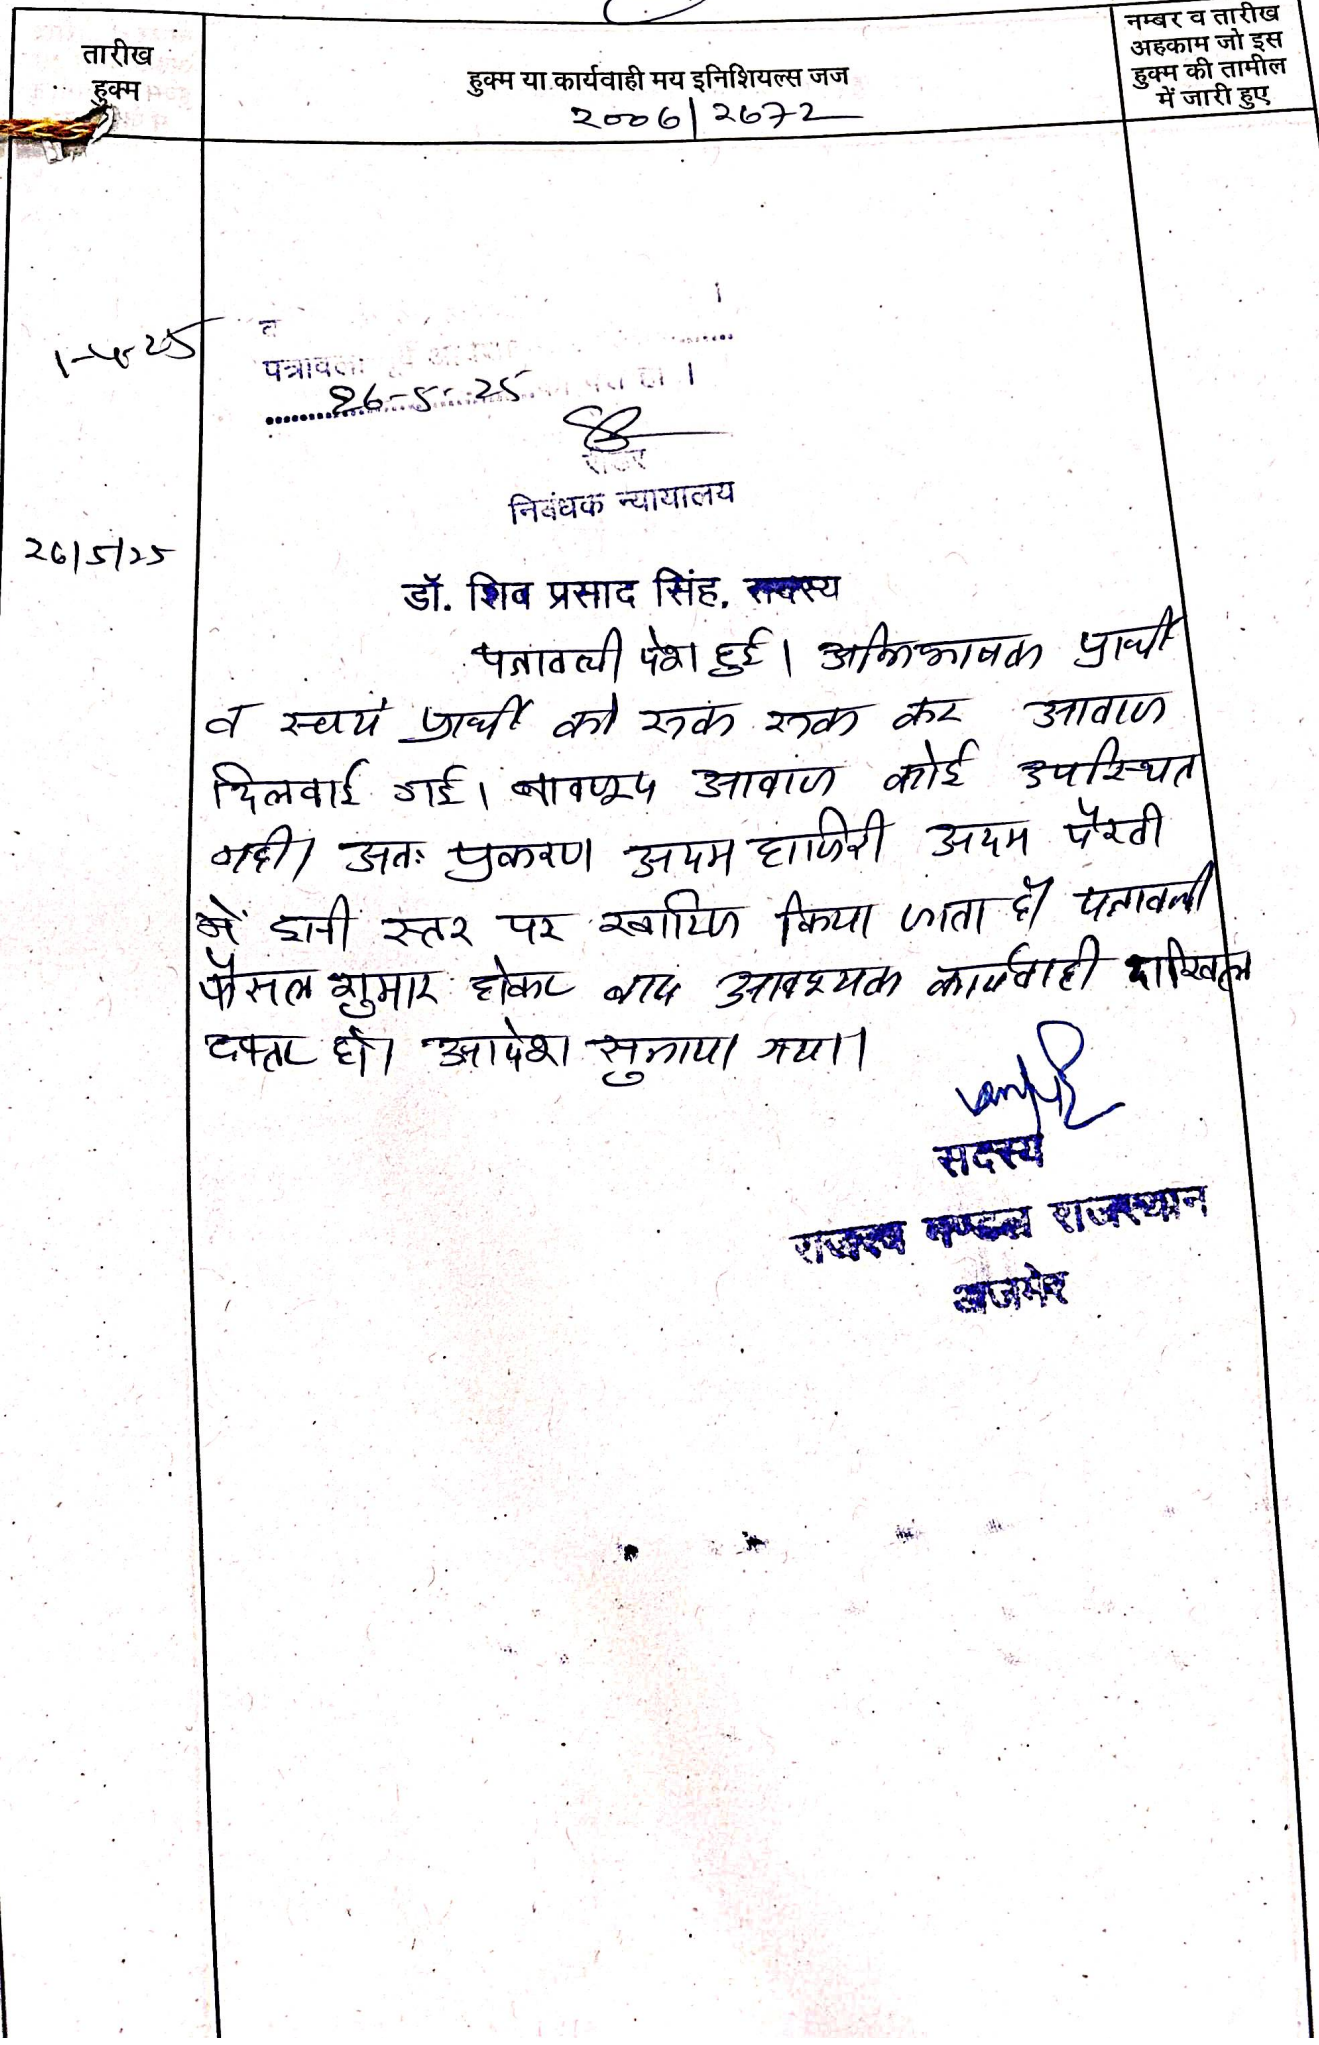 तारीख
हुक्म
हुक्म या कार्यवाही मय इनिशियल्स जज
2006/2672
नम्बर व तारीख
अहकाम जो इस
हुक्म की तामील
में जारी हुए
1-4-25
व
पत्रावली
26-5-25
रीडर
निबंधक न्यायालय
26/5/25
डॉ. शिव प्रसाद सिंह, सदस्य
पत्रावली पेश हुई। अभिभाषक प्रार्थी
व स्वयं प्रार्थी को रुक रुक कर आवाज
दिलवाई गई। बावजूद आवाज कोई उपस्थित
नहीं। अतः प्रकरण अदम हाजिरी अदम पैरवी
में इसी स्तर पर खारिज किया जाता है। पत्रावली
फैसल शुमार होकर बाद आवश्यक कार्यवाही दाखिल
दफ्तर हो। आदेश सुनाया गया।
सदस्य
राजस्व मण्डल राजस्थान
अजमेर